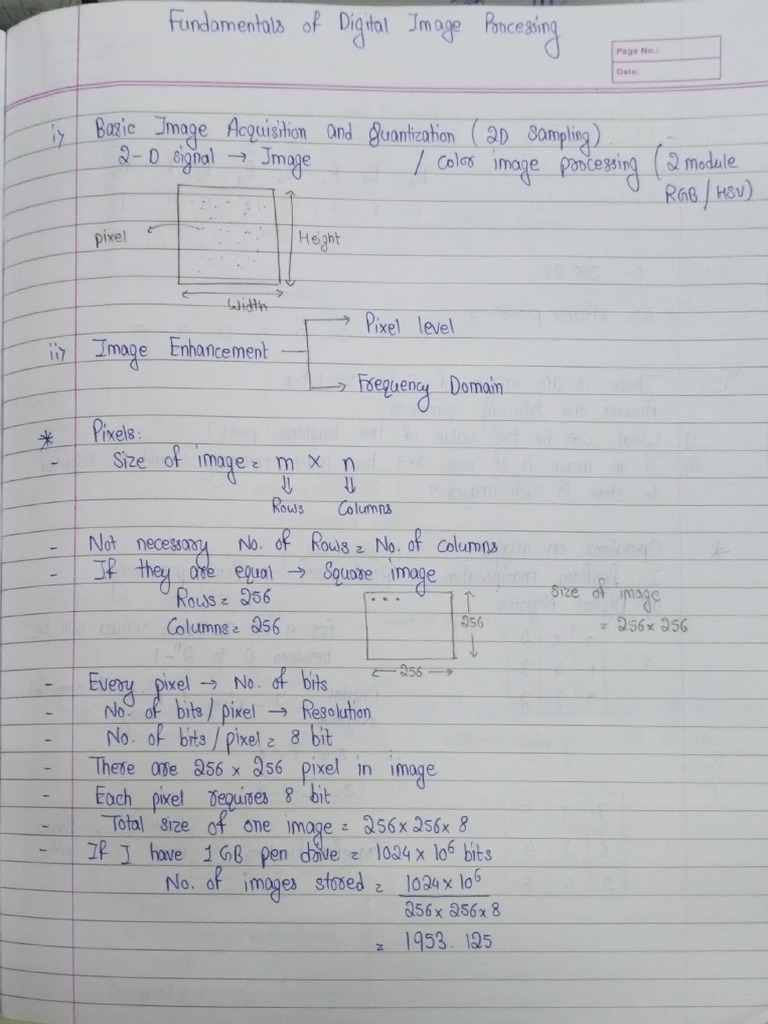 Fundamentals of Digital Image Processing
Page No.:
Date:
i> Basic Image Acquisition and Quantization ( 2D Sampling)
2-D signal → Image / color image processing ( 2 module
RGB / HSV)
pixel
Height
Width
Pixel level
ii> Image Enhancement
Frequency Domain
* Pixels:
- Size of image = m × n
⇓ ⇓
Rows Columns
- Not necessary No. of Rows = No. of columns
- If they are equal → Square image
Rows = 256
Columns = 256
256
256
Size of image
= 256×256
- Every pixel → No. of bits
- No. of bits/pixel → Resolution
- No. of bits/pixel = 8 bit
- There are 256 × 256 pixel in image
- Each pixel requires 8 bit
- Total size of one image = 256×256×8
- If I have 1 GB pen drive = 1024 × 10⁶ bits
No. of images stored = 1024 × 10⁶
256×256×8
= 1953.125